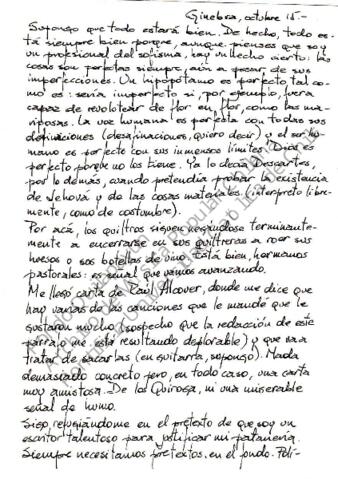 Ginebra, octubre 15.-
Supongo que todo estará bien. De hecho, todo es-
tá siempre bien porque, aunque pienses que soy
un profesional del sofisma, hay un hecho cierto: las
cosas son perfectas siempre, aún a pesar de sus
imperfecciones. Un hipopótamo es perfecto tal co-
mo es: sería imperfecto si, por ejemplo, fuera
capaz de revolotear de flor en flor, como las ma-
riposas. La voz humana es perfecta con todas sus
(desafinaciones, quiero decir) y el ser hu-
mano es perfecto con sus inmensos límites. Dios es
perfecto porque no los tiene. Ya lo decía Descartes,
por lo demás, cuando pretendía probar la existencia
de Jehová y de las cosas materiales. (interpreto libre-
mente, como de costumbre).
Por acá, los quiltros siguen negándose terminante-
mente a encerrarse en sus quiltreras a roer sus
huesos o sus botellas de vino. Está bien, hermanos
pastorales: es señal que vamos avanzando.
Me llegó carta de Raúl Alcover, donde me dice que
hay varias de las canciones que le mandé que le
gustaron mucho (sospecho que la redacción de este
párrafo me está resultando deplorable) y que va a
tratar de sacarlas (en guitarra, supongo). Nada
demasiado concreto pero, en todo caso, una carta
muy amistosa. De los Quiroga, ni una miserable
señal de humo.
Sigo refugiándome en el pretexto de que soy un
escritor talentoso para justificar mi patanería.
Siempre necesitamos pretextos, en el fondo. Feli-